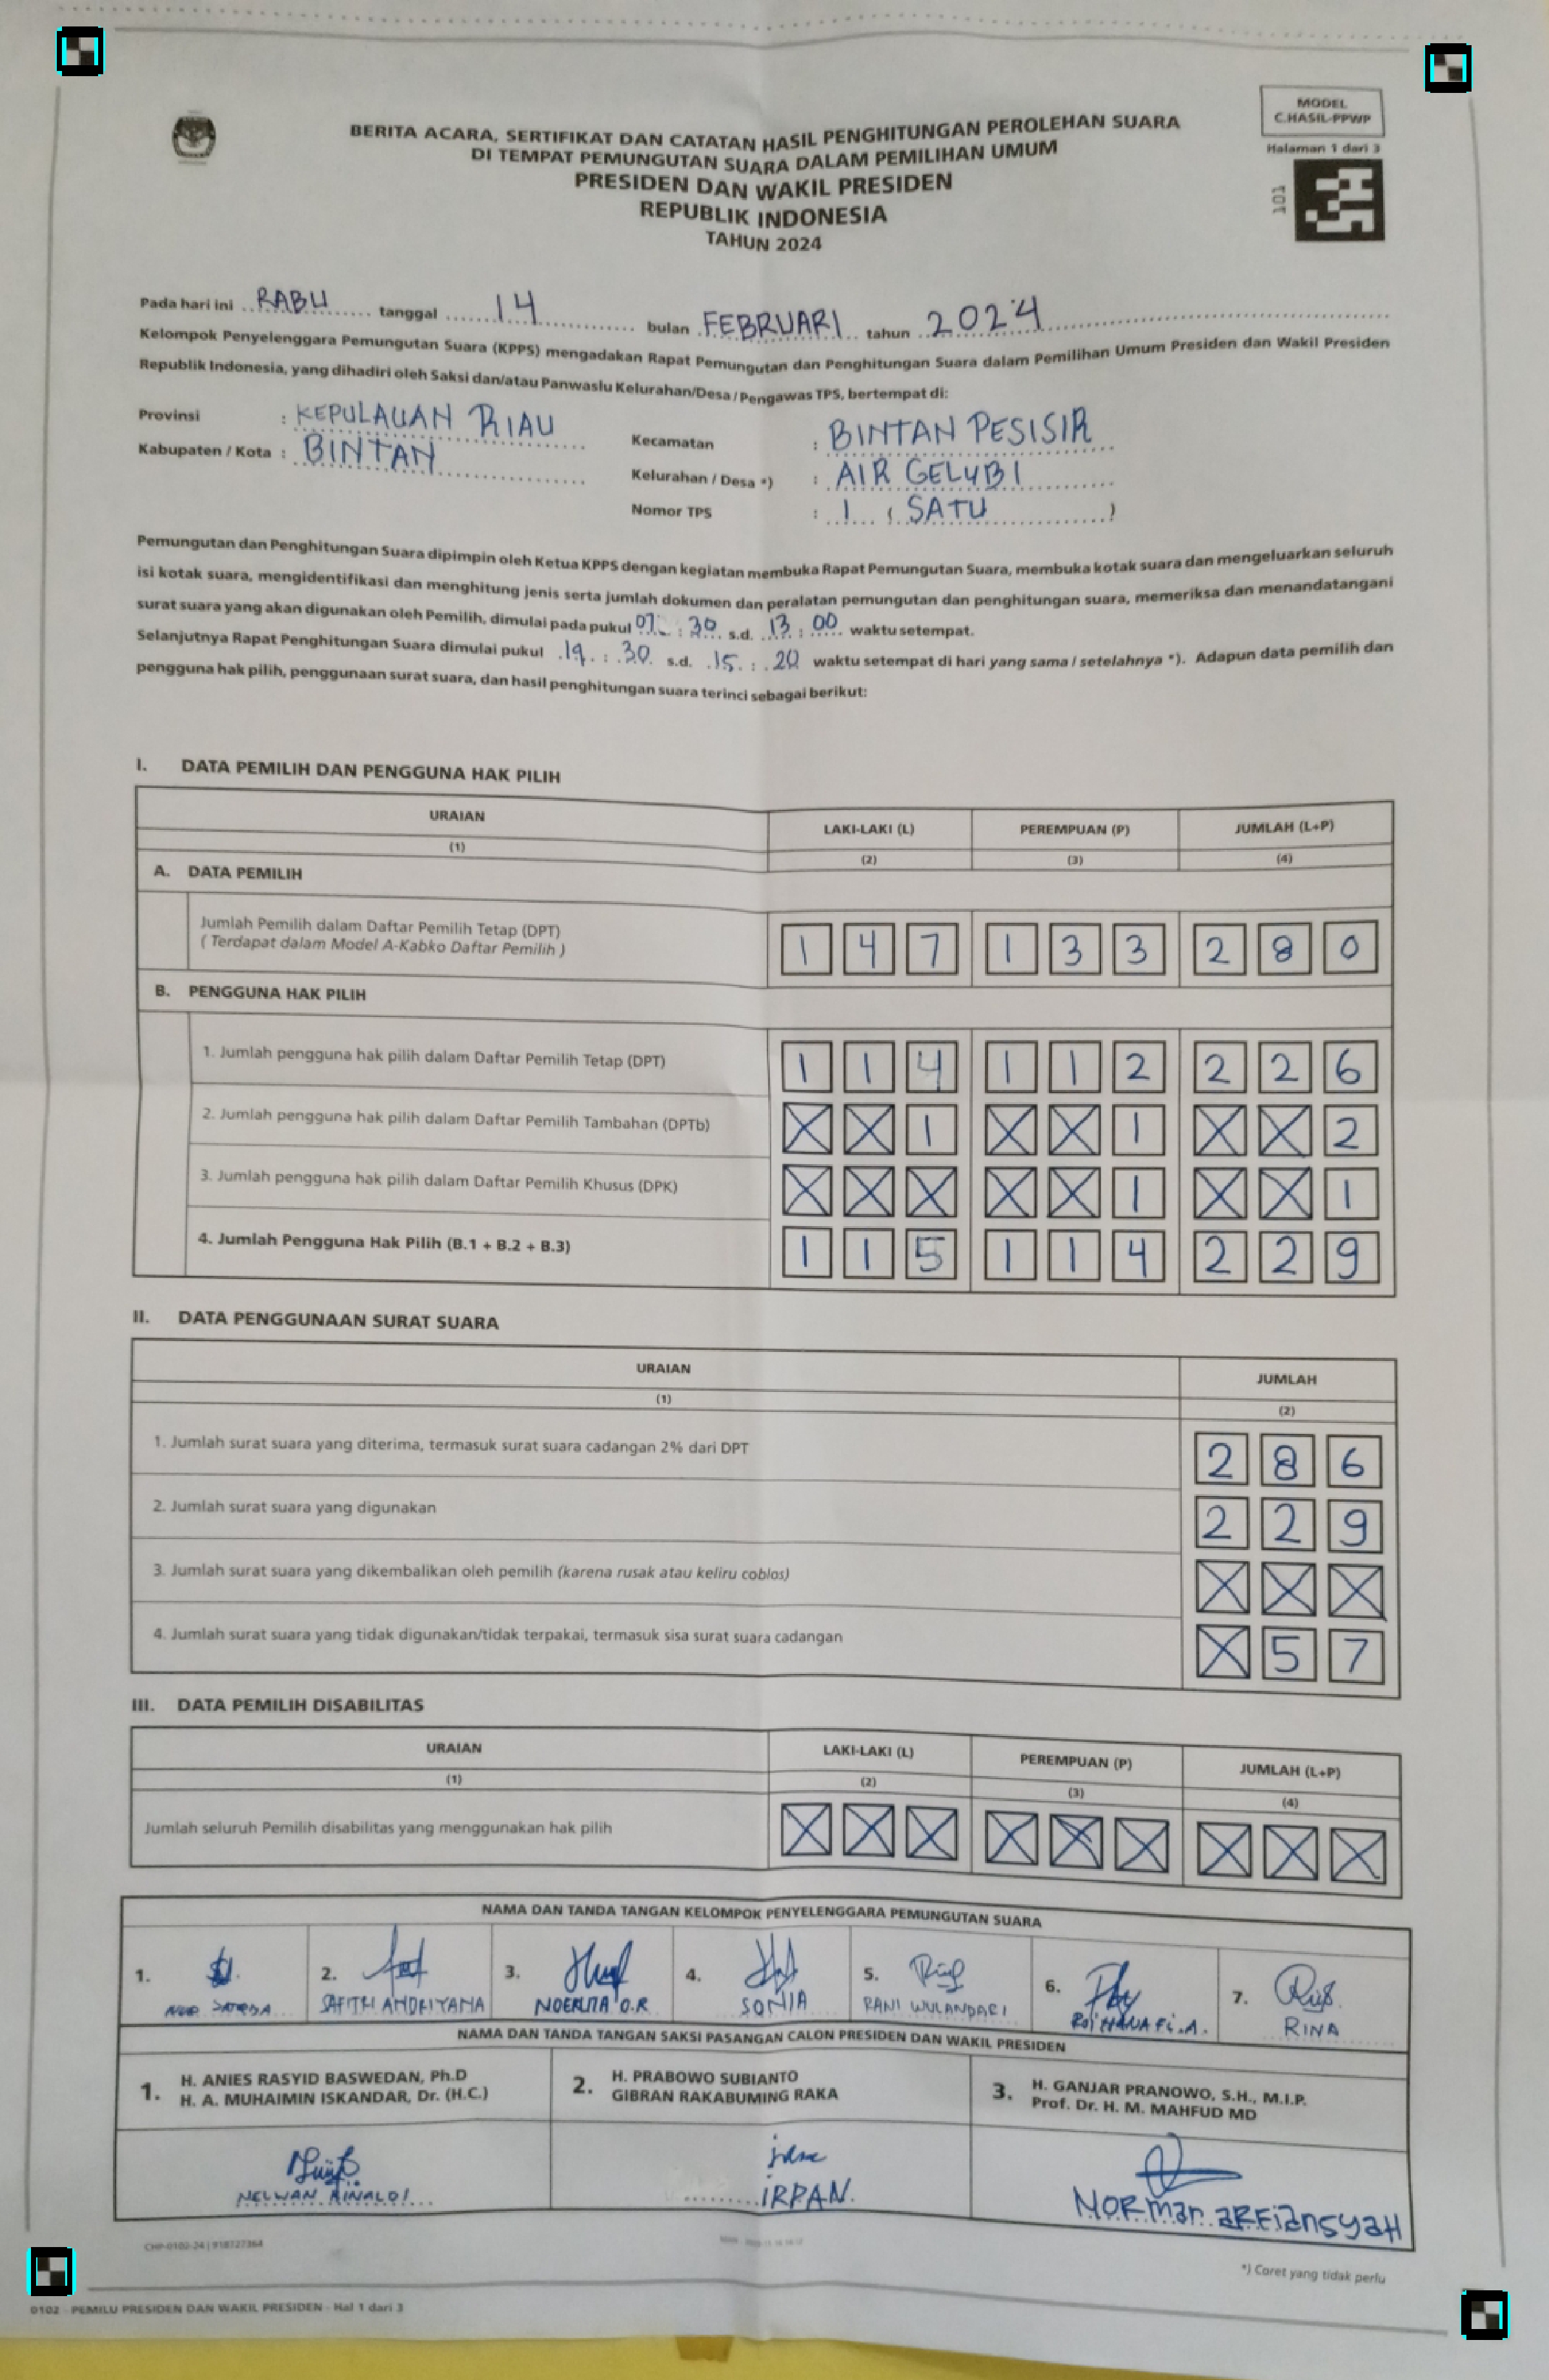 MODEL
C.HASIL-PPWP
Halaman 1 dari 3
101
BERITA ACARA, SERTIFIKAT DAN CATATAN HASIL PENGHITUNGAN PEROLEHAN SUARA
DI TEMPAT PEMUNGUTAN SUARA DALAM PEMILIHAN UMUM
PRESIDEN DAN WAKIL PRESIDEN
REPUBLIK INDONESIA
TAHUN 2024
Pada hari ini RABU tanggal 14 bulan FEBRUARI tahun 2024
Kelompok Penyelenggara Pemungutan Suara (KPPS) mengadakan Rapat Pemungutan dan Penghitungan Suara dalam Pemilihan Umum Presiden dan Wakil Presiden
Republik Indonesia, yang dihadiri oleh Saksi dan/atau Panwaslu Kelurahan/Desa / Pengawas TPS, bertempat di:
Provinsi : KEPULAUAN RIAU
Kabupaten / Kota : BINTAN
Kecamatan : BINTAN PESISIR
Kelurahan / Desa *) : AIR GELUBI
Nomor TPS : 1 ( SATU )
Pemungutan dan Penghitungan Suara dipimpin oleh Ketua KPPS dengan kegiatan membuka Rapat Pemungutan Suara, membuka kotak suara dan mengeluarkan seluruh
isi kotak suara, mengidentifikasi dan menghitung jenis serta jumlah dokumen dan peralatan pemungutan dan penghitungan suara, memeriksa dan menandatangani
surat suara yang akan digunakan oleh Pemilih, dimulai pada pukul 07 : 30 s.d. 13 : 00 waktu setempat.
Selanjutnya Rapat Penghitungan Suara dimulai pukul : 30 s.d. 15 : 20 waktu setempat di hari yang sama / setelahnya *). Adapun data pemilih dan
pengguna hak pilih, penggunaan surat suara, dan hasil penghitungan suara terinci sebagai berikut:
I. DATA PEMILIH DAN PENGGUNA HAK PILIH
URAIAN LAKI-LAKI (L) PEREMPUAN (P) JUMLAH (L+P)
(1) (2) (3) (4)
A. DATA PEMILIH
Jumlah Pemilih dalam Daftar Pemilih Tetap (DPT)
( Terdapat dalam Model A-Kabko Daftar Pemilih ) 1 4 7 1 3 3 2 8 0
B. PENGGUNA HAK PILIH
1. Jumlah pengguna hak pilih dalam Daftar Pemilih Tetap (DPT) 1 1 4 1 1 2 2 2 6
2. Jumlah pengguna hak pilih dalam Daftar Pemilih Tambahan (DPTb) X X 1 X X 1 X X 2
3. Jumlah pengguna hak pilih dalam Daftar Pemilih Khusus (DPK) X X X X X 1 X X 1
4. Jumlah Pengguna Hak Pilih (B.1 + B.2 + B.3) 1 1 5 1 1 4 2 2 9
II. DATA PENGGUNAAN SURAT SUARA
URAIAN JUMLAH
(1) (2)
1. Jumlah surat suara yang diterima, termasuk surat suara cadangan 2% dari DPT 2 8 6
2. Jumlah surat suara yang digunakan 2 2 9
3. Jumlah surat suara yang dikembalikan oleh pemilih (karena rusak atau keliru coblos) X X X
4. Jumlah surat suara yang tidak digunakan/tidak terpakai, termasuk sisa surat suara cadangan X 5 7
III. DATA PEMILIH DISABILITAS
URAIAN LAKI-LAKI (L) PEREMPUAN (P) JUMLAH (L+P)
(1) (2) (3) (4)
Jumlah seluruh Pemilih disabilitas yang menggunakan hak pilih X X X X X X X X X
NAMA DAN TANDA TANGAN KELOMPOK PENYELENGGARA PEMUNGUTAN SUARA
1. 2. 3. 4. 5. 6. 7.
SAFITRI ANDRIYANA NOERLITA O.R SONIA RANI WULANDARI ROIHANA FI.A. RINA
NAMA DAN TANDA TANGAN SAKSI PASANGAN CALON PRESIDEN DAN WAKIL PRESIDEN
1. H. ANIES RASYID BASWEDAN, Ph.D
H. A. MUHAIMIN ISKANDAR, Dr. (H.C.)
2. H. PRABOWO SUBIANTO
GIBRAN RAKABUMING RAKA
3. H. GANJAR PRANOWO, S.H., M.I.P.
Prof. Dr. H. M. MAHFUD MD
NELWAN RINALDI IRPAN. NORMan aREiansyaH
CHP-0102-24 | 918727364
*) Coret yang tidak perlu
0102 - PEMILU PRESIDEN DAN WAKIL PRESIDEN - Hal 1 dari 3